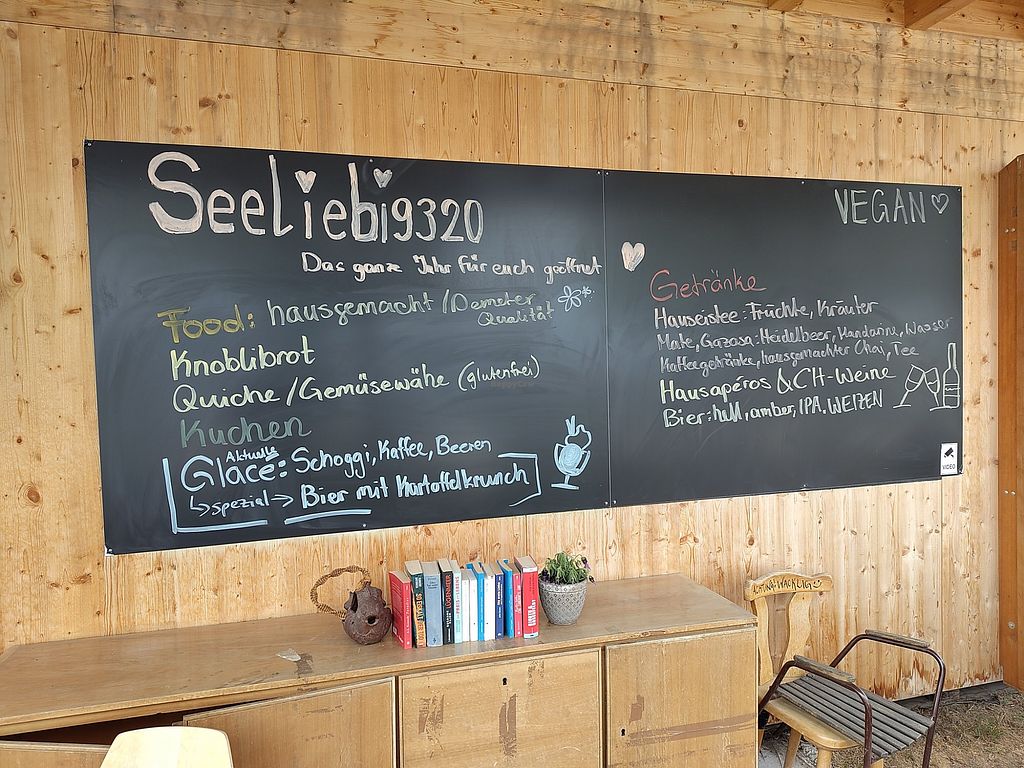 Seeliebi9320
Das ganze Jahr für euch geöffnet
Food: hausgemacht / Demeter
Qualität
Knoblibrot
Quiche/Gemüsewähe (glutenfrei)
Kuchen
Aktuelle
Glacé: Schoggi, Kaffee, Beeren
spezial → Bier mit Kartoffelkrunch
VEGAN
Getränke
Hauseistee: Früchte, Kräuter
Mate, Gazosa: Heidelbeer, Mandarine, Wasser
Kaffeegetränke, hausgemachter Chai, Tee
Hausapéros & CH-Weine
Bier: hell, amber, IPA. WEIZEN
VIDEO
ACHTUNG WACKLIG!